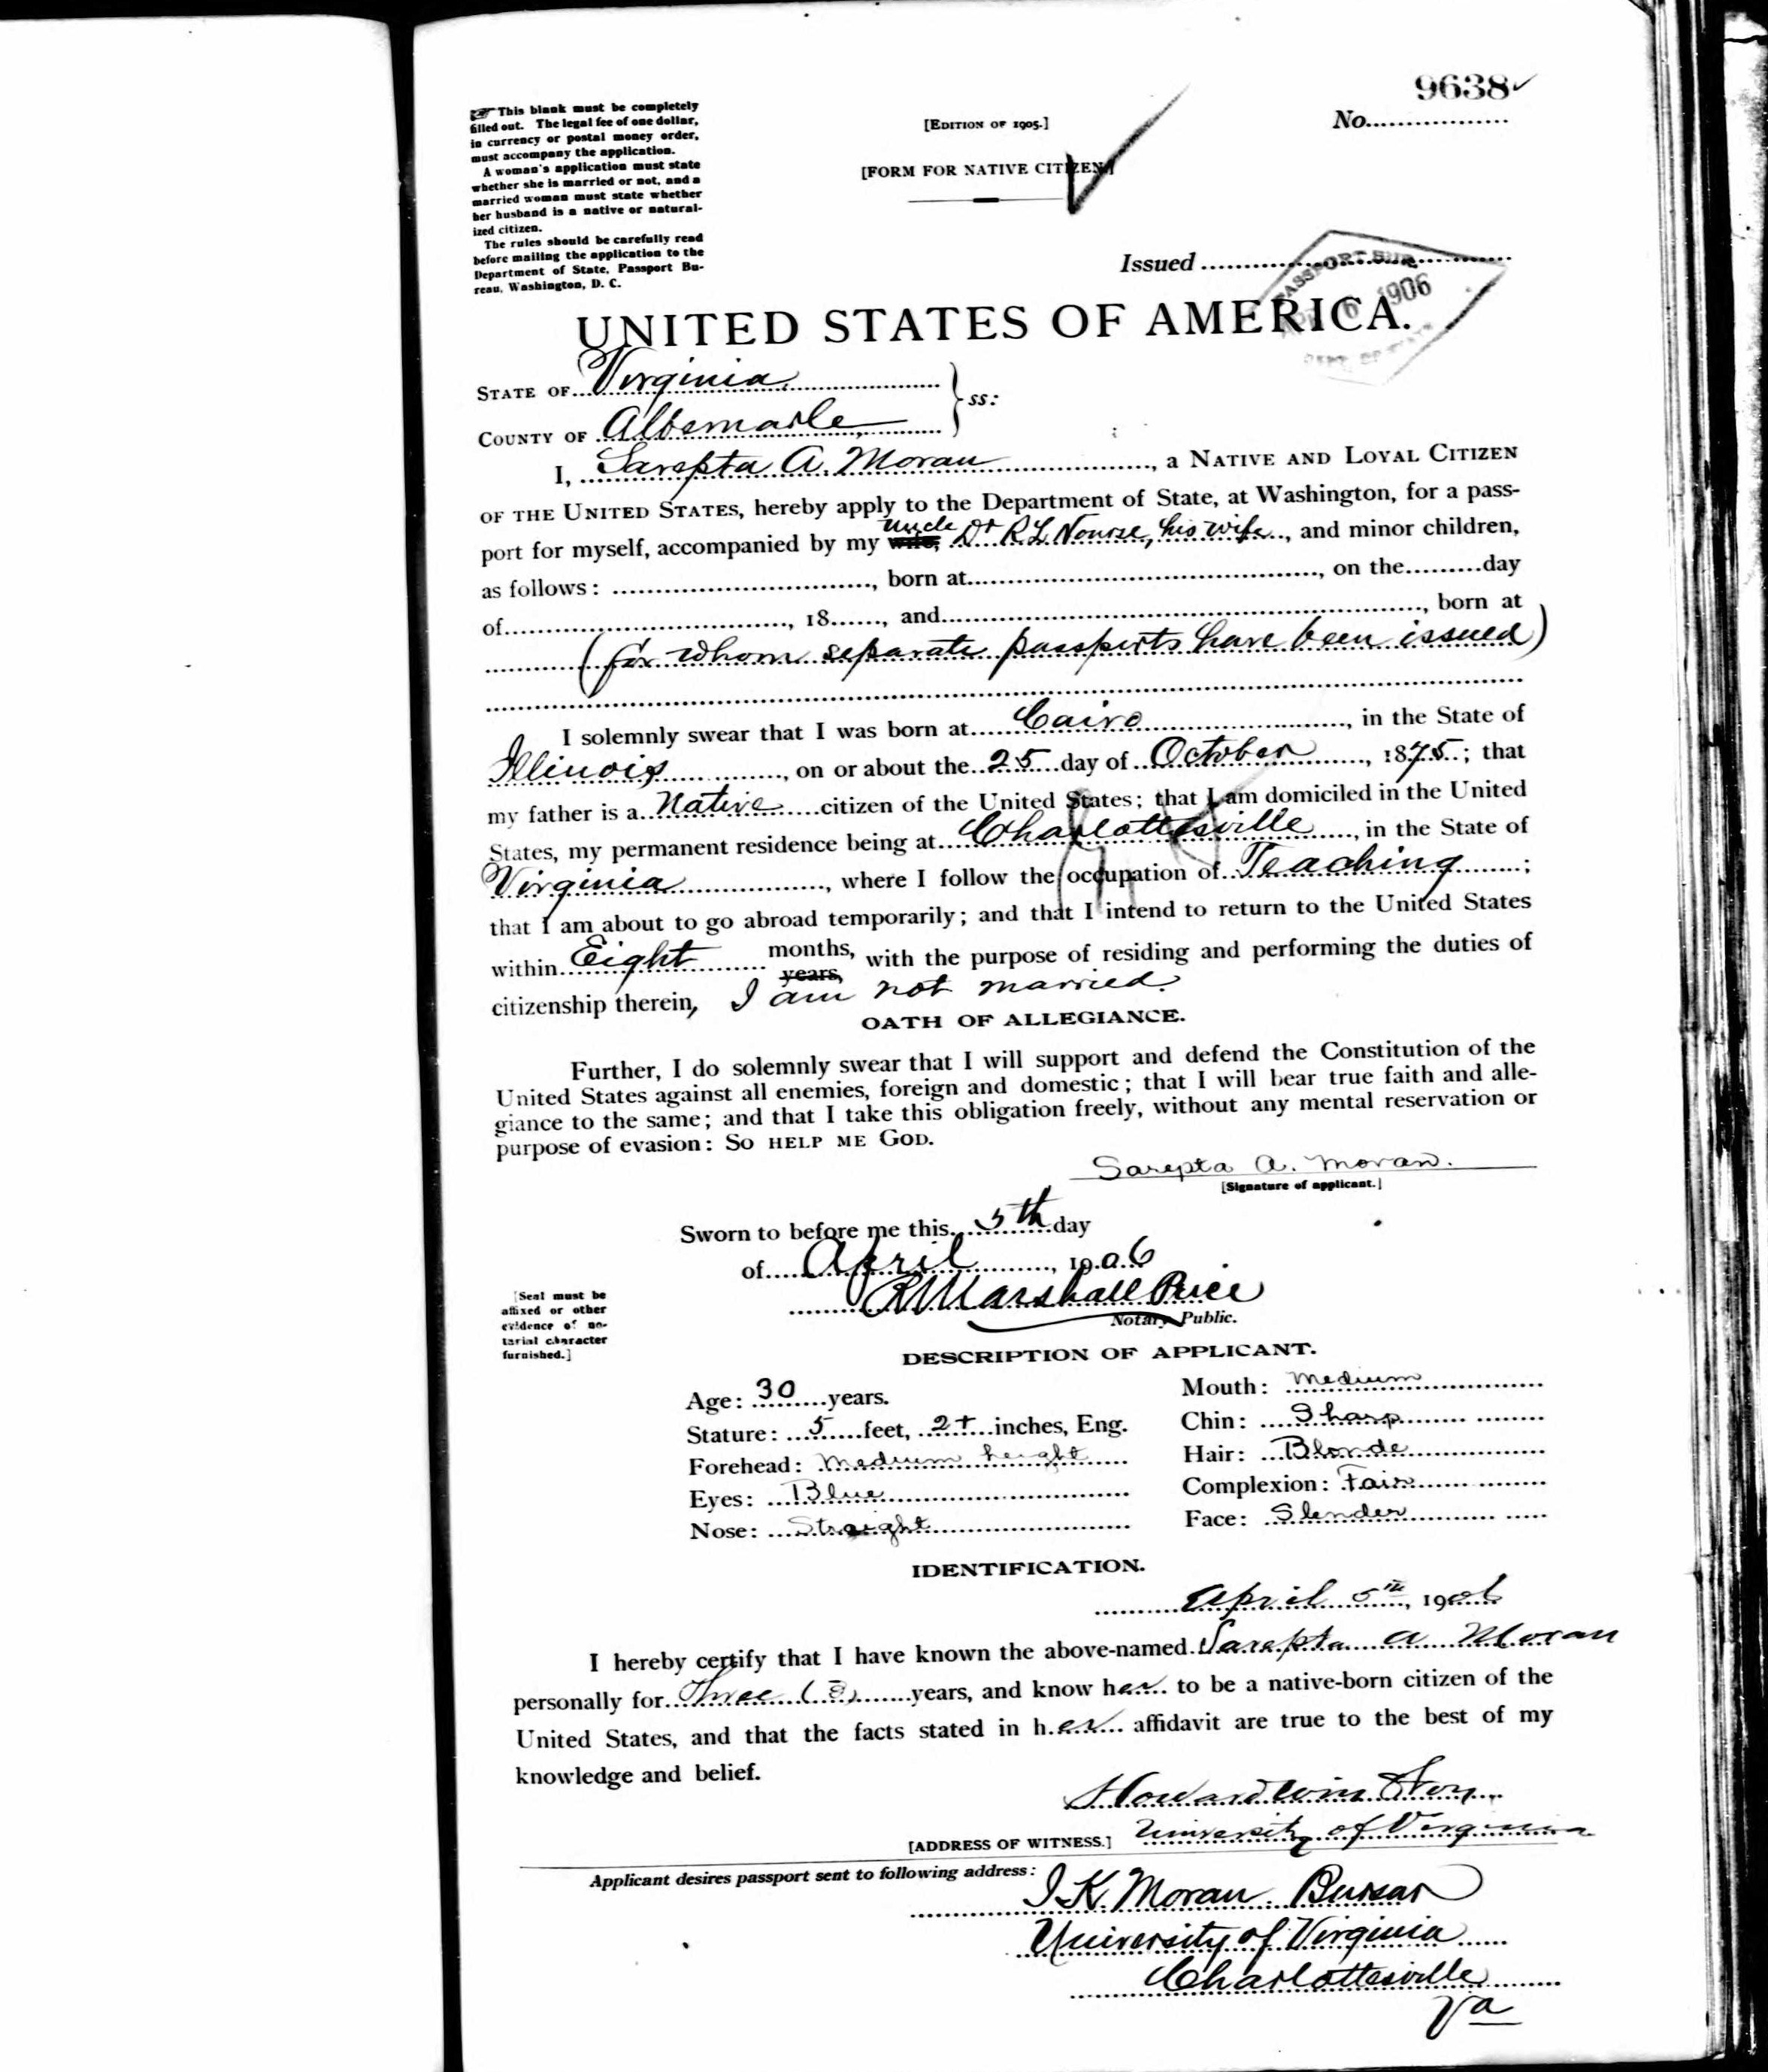 9638
No.
This blank must be completely
filled out. The legal fee of one dollar,
in currency or postal money order,
must accompany the application.
A woman's application must state
whether she is married or not, and a
married woman must state whether
her husband is a native or natural-
ized citizen.
The rules should be carefully read
before mailing the application to the
Department of State, Passport Bu-
reau, Washington, D. C.
[EDITION OF 1905.]
[FORM FOR NATIVE CITIZEN]
Issued
PASSPORT BUR
6 1906
DEPT. OF STATE
UNITED STATES OF AMERICA.
STATE OF Virginia
COUNTY OF Albemarle
ss:
I, Sarepta A. Moran, a NATIVE AND LOYAL CITIZEN
OF THE UNITED STATES, hereby apply to the Department of State, at Washington, for a pass-
uncle
port for myself, accompanied by my wife, Dr R L Nourse, his wife, and minor children,
as follows: , born at , on the day
of , 18 , and , born at
(for whom separate passports have been issued)
I solemnly swear that I was born at Cairo, in the State of
Illinois, on or about the 25 day of October, 1875; that
my father is a Native citizen of the United States; that I am domiciled in the United
States, my permanent residence being at Charlottesville, in the State of
Virginia, where I follow the occupation of Teaching;
that I am about to go abroad temporarily; and that I intend to return to the United States
within Eight months, years, with the purpose of residing and performing the duties of
citizenship therein, I am not married.
OATH OF ALLEGIANCE.
Further, I do solemnly swear that I will support and defend the Constitution of the
United States against all enemies, foreign and domestic; that I will bear true faith and alle-
giance to the same; and that I take this obligation freely, without any mental reservation or
purpose of evasion: SO HELP ME GOD.
Sarepta A. Moran.
[Signature of applicant.]
Sworn to before me this 5th day
of April, 1906
R Marshall Price
Notary Public.
[Seal must be
affixed or other
evidence of no-
tarial character
furnished.]
DESCRIPTION OF APPLICANT.
Age: 30 years.
Mouth: Medium
Stature: 5 feet, 2+ inches, Eng.
Chin: Sharp
Forehead: Medium height
Hair: Blonde
Eyes: Blue
Complexion: Fair
Nose: Straight
Face: Slender
IDENTIFICATION.
April 5th, 1906
I hereby certify that I have known the above-named Sarepta A Moran
personally for Three (3) years, and know her to be a native-born citizen of the
United States, and that the facts stated in her affidavit are true to the best of my
knowledge and belief.
Howard Winston
[ADDRESS OF WITNESS.] University of Virginia
Applicant desires passport sent to following address:
I. K. Moran Bursar
University of Virginia
Charlottesville
Va